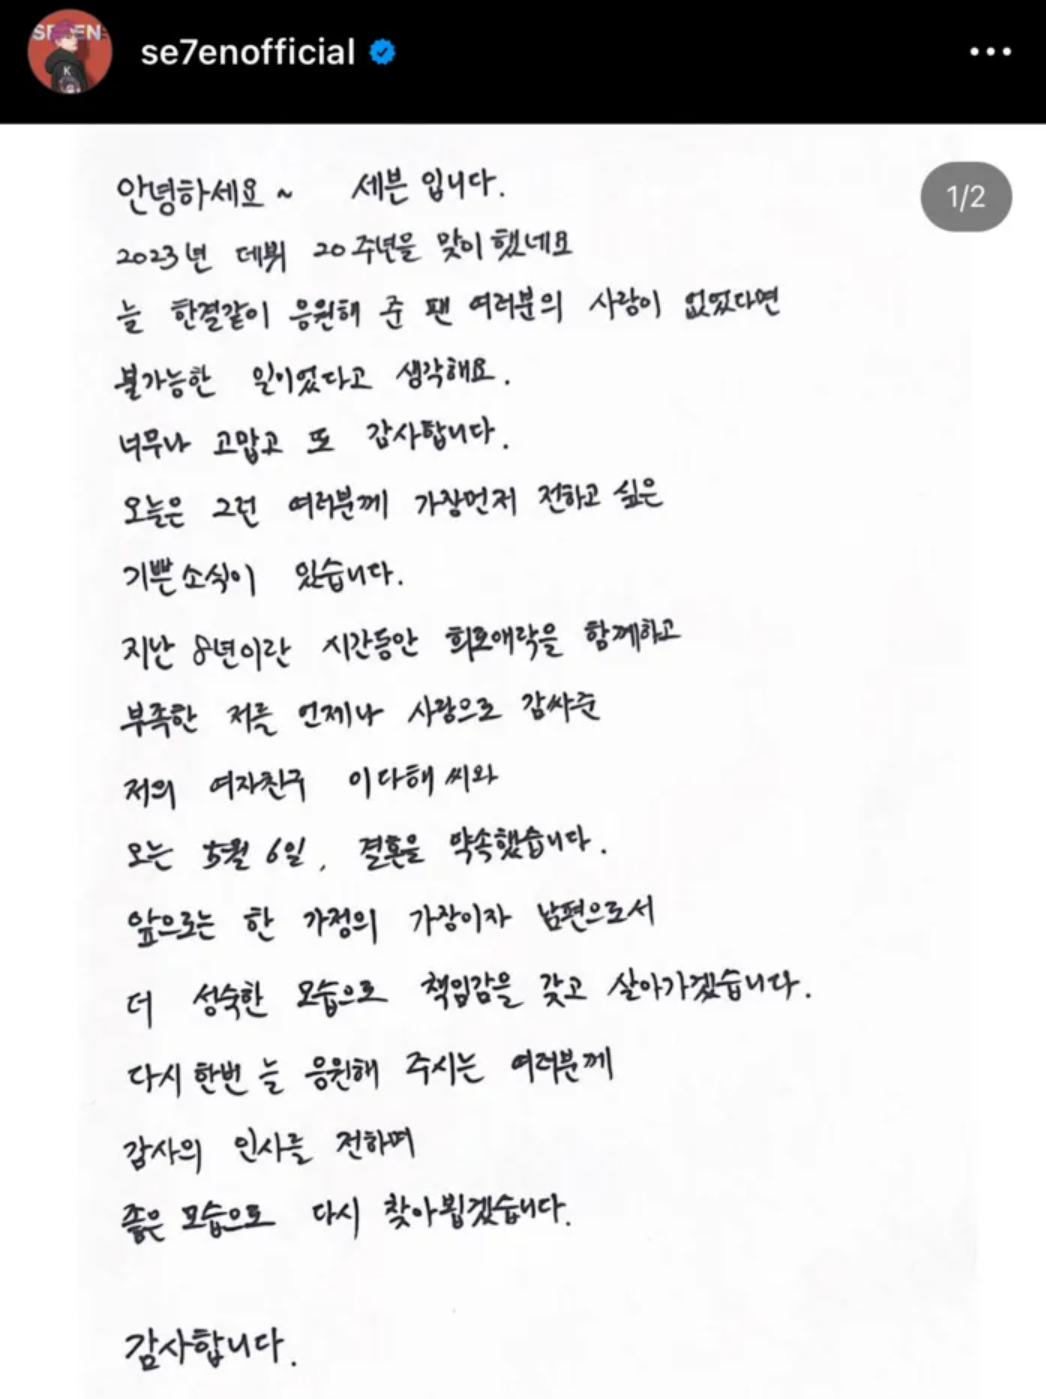 SE7EN
K
se7enofficial
1/2
안녕하세요~ 세븐 입니다.
2023년 데뷔 20주년을 맞이 했네요
늘 한결같이 응원해 준 팬 여러분의 사랑이 없었다면
불가능한 일이었다고 생각해요.
너무나 고맙고 또 감사합니다.
오늘은 그런 여러분께 가장먼저 전하고 싶은
기쁜소식이 있습니다.
지난 8년이란 시간동안 희로애락을 함께하고
부족한 저를 언제나 사랑으로 감싸준
저의 여자친구 이다해 씨와
오는 5월 6일, 결혼을 약속했습니다.
앞으로는 한 가정의 가장이자 남편으로서
더 성숙한 모습으로 책임감을 갖고 살아가겠습니다.
다시 한번 늘 응원해 주시는 여러분께
감사의 인사를 전하며
좋은 모습으로 다시 찾아뵙겠습니다.
감사합니다.